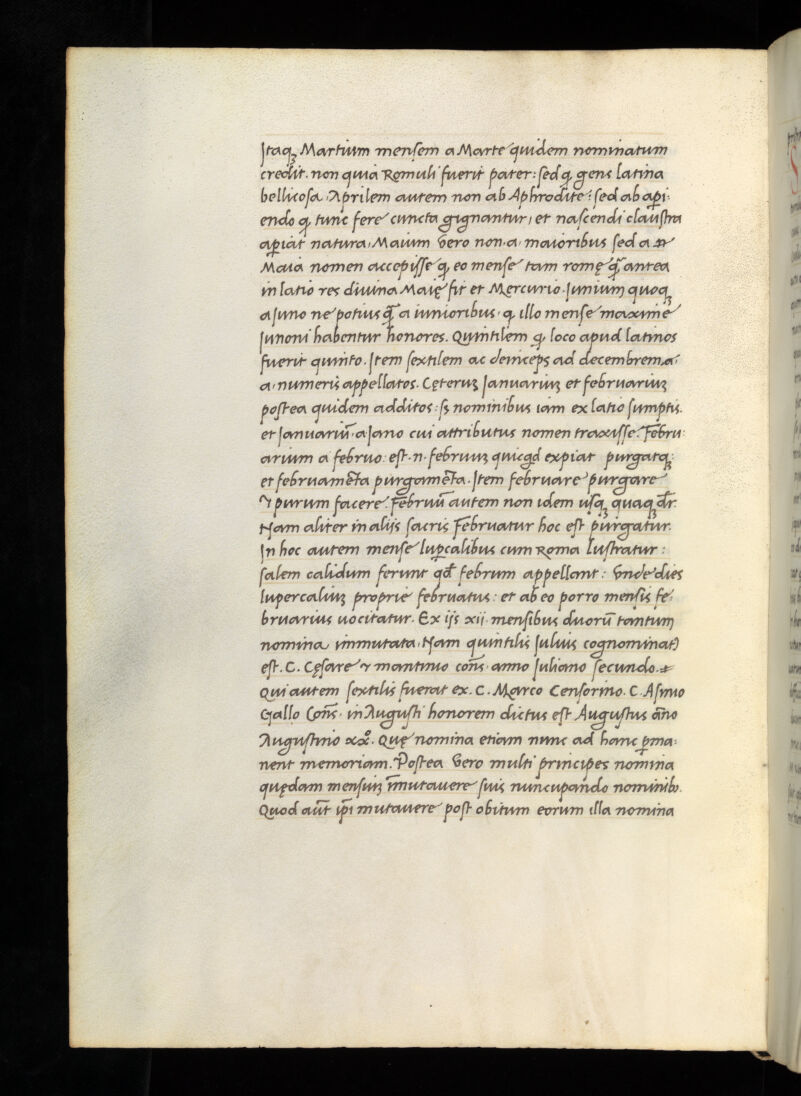 Itaqꝫ Martium mensem a Marte quidem nominatum
credit. non quia Romuli fuerit pater: sed ꝙ gens latina
bellicosa. Aprilem autem non ab Aphrodite: sed ab api:
endo ꝙ tunc fere cuncta gignantur, et nascendi claustra
apiat natura, Maium vero non a maioribus sed a
Maia nomen accepisse ꝙ eo mense tam romę ꝙ̃ antea
in latio res diuina Maię fit et Mercurio. Iuniumꝫ quoqꝫ
a Iuno ne potius ꝙ̃ a iunioribus. ꝙ illo mense maxime
Iunoni habentur honores. Quintilem ꝙ loco apud latinos
fuerit quinto. Item sextilem ac deinceps ad decembrem.
a numeris appellatos. Cęteruꝫ Ianuariuꝫ et februariuꝫ
postea quidem additos: sꝫ nominibus iam ex latio sumptis.
et Ianuariũ a Iano cui attributus nomen traxisse. Febru:
arium a februo: est .n. februuꝫ quicqd expiat purgatqꝫ:
et februamẽta purgamẽta. Item februare purgare
⁊ purum facere. Februũ autem non idem usqꝫ quaqꝫ dr̃.
Nam aliter in alijs sacris Februatur hoc est purgatur.
In hoc autem mense lupcalibus cum Roma lustratur:
salem calidum ferunt qđ februm appellant: Vnde dies
lupercaliuꝫ proprie februatus: et ab eo porro mensis fe:
bruarius uocitatur. Ex ijs xij. mensibus duorũ tantumꝫ
nomina immutata. Nam quintilis Iulius cognominatꝰ
est. C. Cęsare ⁊ mantinio cons̃. anno Iuliano secundo.
Qui autem sextilis fuerat ex. C. Marco Censorino. C. Asinio
Gallo Cons̃. in Augusti honorem dictus est Augustus ãno
Augustino xxº. Quę nomina etiam nunc ad hanc pma:
nent memoriam. Postea vero multi principes nomina
quędam mensiuꝫ ĩmutauere suis nuncupando nominibꝰ.
Quod aũt ipĩ mutauere post obitum eorum illa nomina